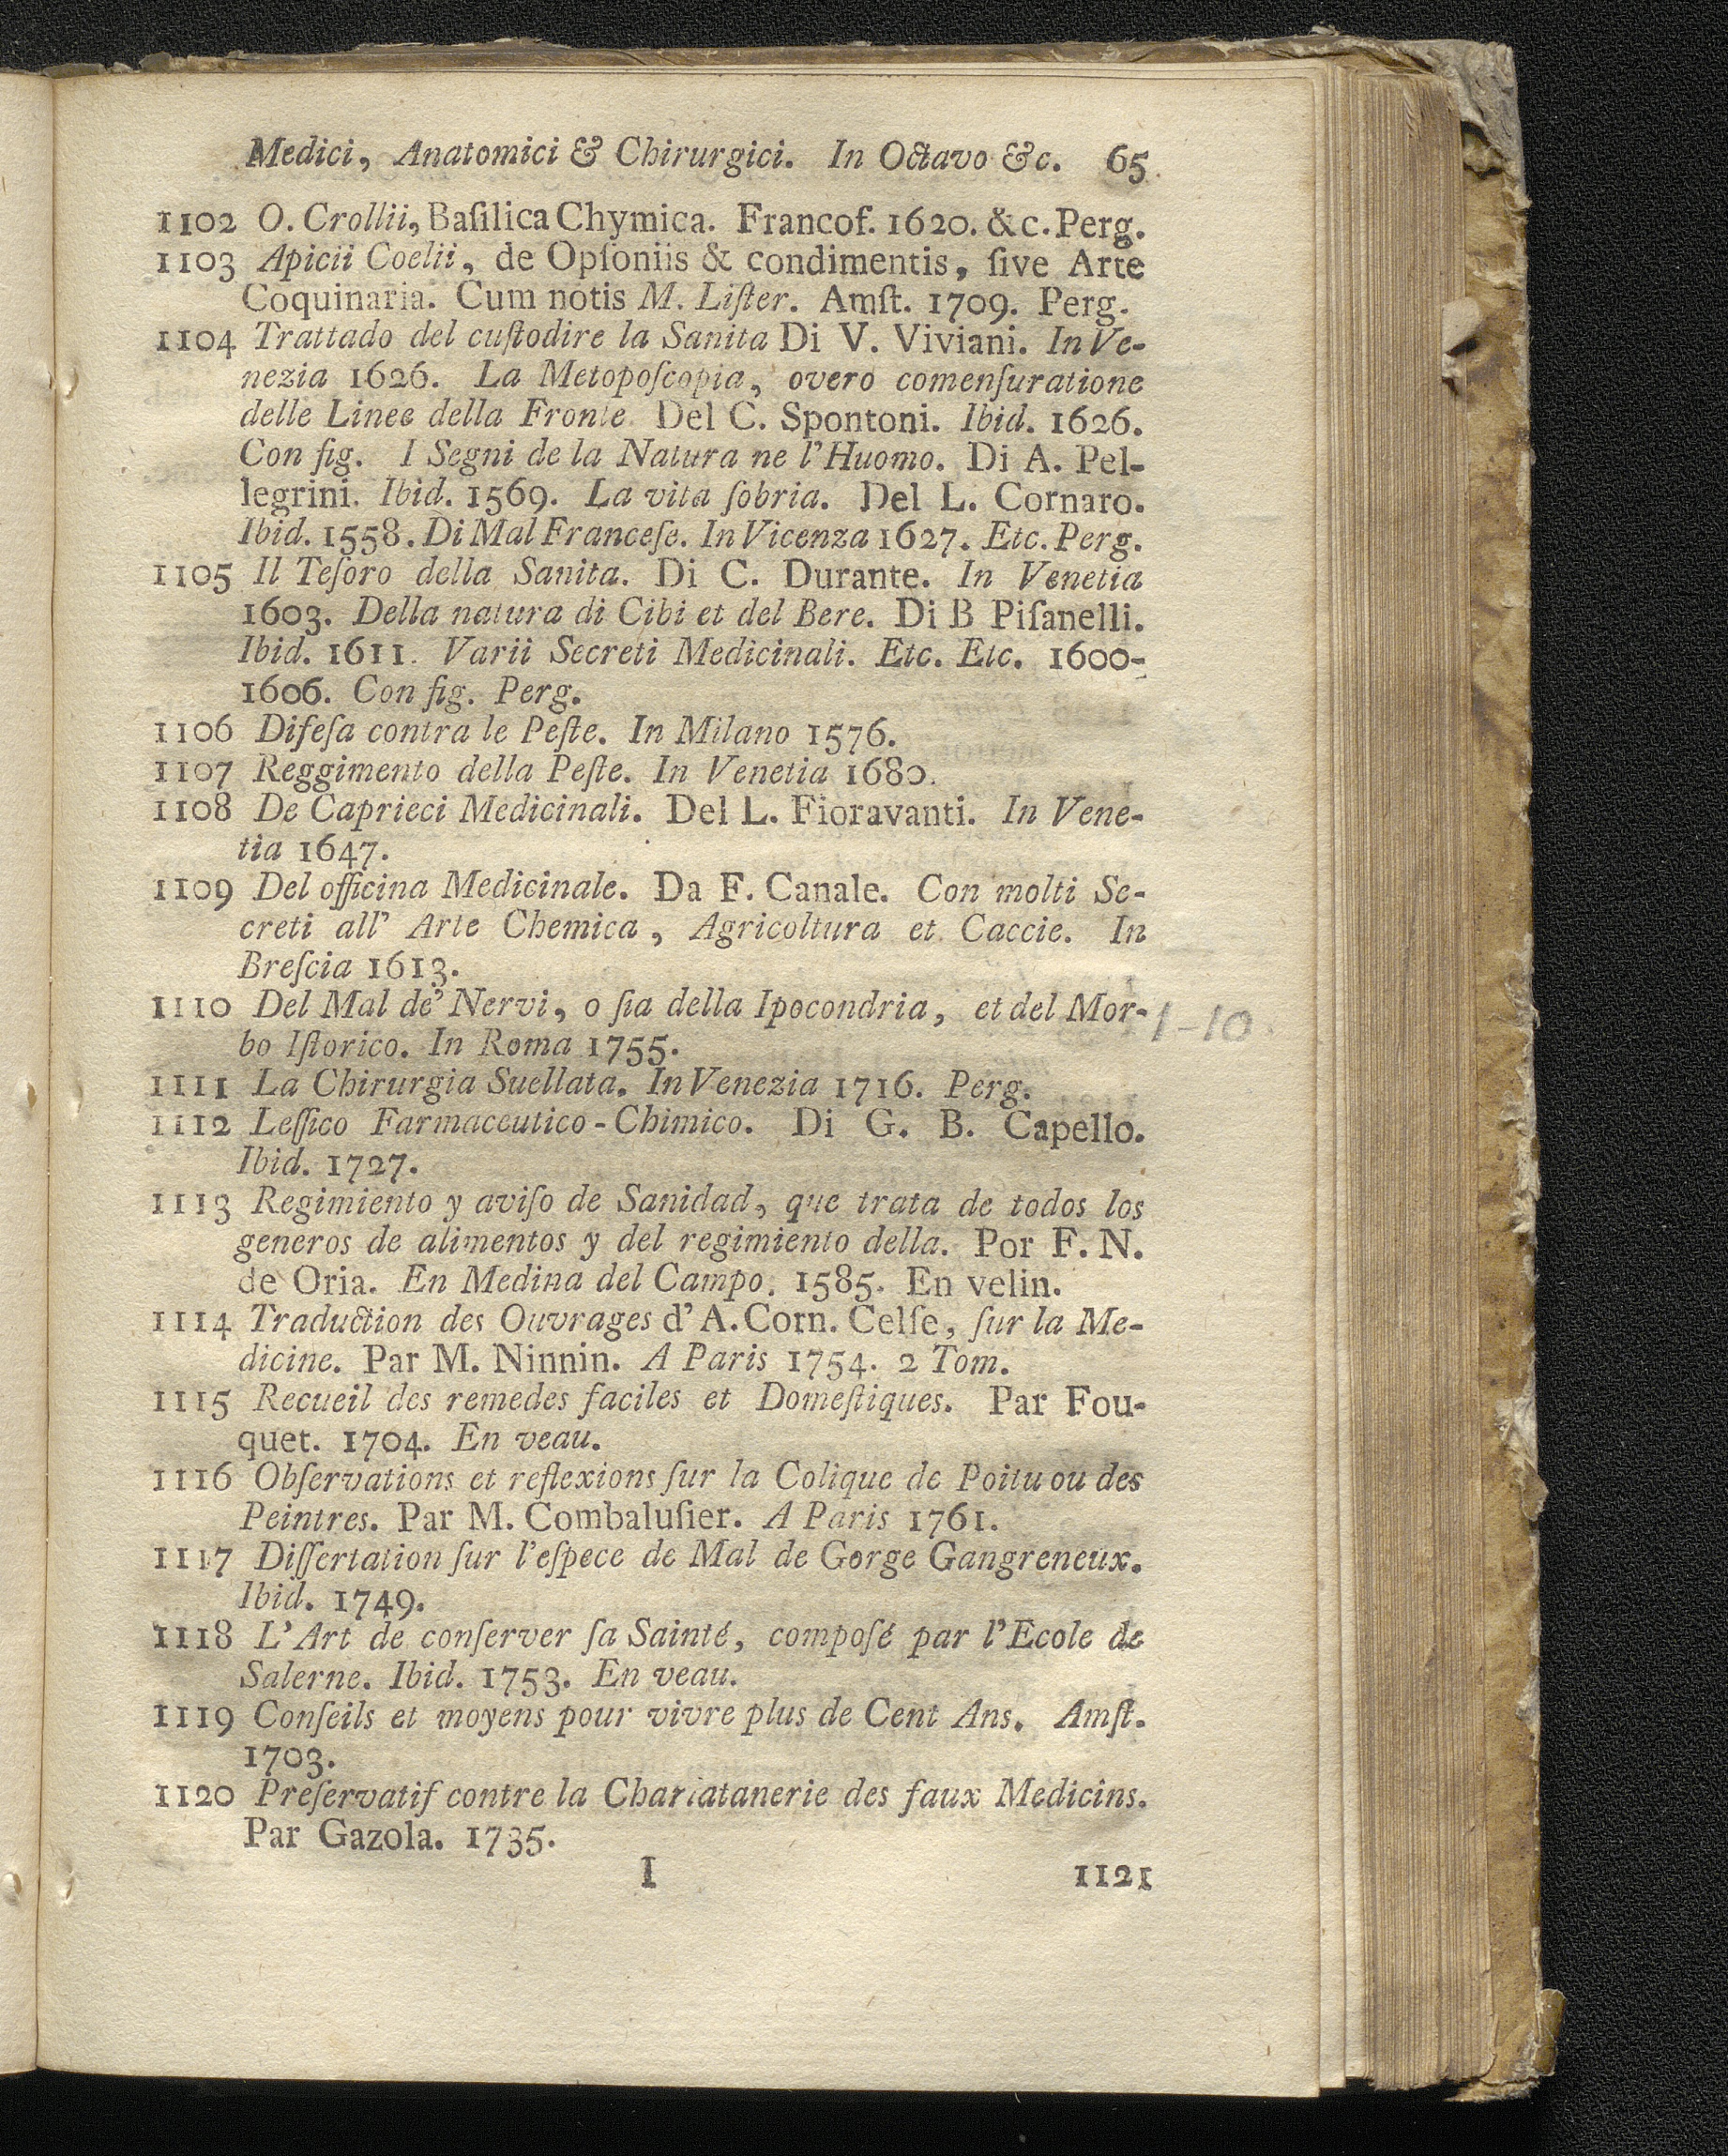 Medici, Anatomici & Chirurgici. In Octavo &c. 65
1102 O. Crollii, Baſilica Chymica. Francof. 1620. &c. Perg.
1103 Apicii Coelii, de Opſoniis & condimentis, ſive Arte
Coquinaria. Cum notis M. Liſter. Amſt. 1709. Perg.
1104 Trattado del cuſtodire la Sanita Di V. Viviani. In Ve-
nezia 1626. La Metopoſcopia, overo comenſuratione
delle Linee della Fronte. Del C. Spontoni. Ibid. 1626.
Con fig. I Segni de la Natura ne l'Huomo. Di A. Pel-
legrini. Ibid. 1569. La vita ſobria. Del L. Cornaro.
Ibid. 1558. Di Mal Franceſe. In Vicenza 1627. Etc. Perg.
1105 Il Teſoro della Sanita. Di C. Durante. In Venetia
1603. Della natura di Cibi et del Bere. Di B Piſanelli.
Ibid. 1611. Varii Secreti Medicinali. Etc. Etc. 1600-
1606. Con fig. Perg.
1106 Difeſa contra le Peſte. In Milano 1576.
1107 Reggimento della Peſte. In Venetia 1680.
1108 De Caprieci Medicinali. Del L. Fioravanti. In Vene-
tia 1647.
1109 Del officina Medicinale. Da F. Canale. Con molti Se-
creti all' Arte Chemica, Agricoltura et Caccie. In
Breſcia 1613.
1110 Del Mal de' Nervi, o ſia della Ipocondria, et del Mor-
1-10
bo Iſtorico. In Roma 1755.
1111 La Chirurgia Suellata. In Venezia 1716. Perg.
1112 Leſſico Farmaceutico-Chimico. Di G. B. Capello.
Ibid. 1727.
1113 Regimiento y aviſo de Sanidad, que trata de todos los
generos de alimentos y del regimiento della. Por F. N.
de Oria. En Medina del Campo. 1585. En velin.
1114 Traduction des Ouvrages d'A. Corn. Celſe, ſur la Me-
dicine. Par M. Ninnin. A Paris 1754. 2 Tom.
1115 Recueil des remedes faciles et Domeſtiques. Par Fou-
quet. 1704. En veau.
1116 Obſervations et reflexions ſur la Colique de Poitu ou des
Peintres. Par M. Combaluſier. A Paris 1761.
1117 Diſſertation ſur l'eſpece de Mal de Gorge Gangreneux.
Ibid. 1749.
1118 L'Art de conſerver ſa Sainté, compoſé par l'Ecole de
Salerne. Ibid. 1753. En veau.
1119 Conſeils et moyens pour vivre plus de Cent Ans. Amſt.
1703.
1120 Preſervatif contre la Charlatanerie des faux Medicins.
Par Gazola. 1735.
I 1121